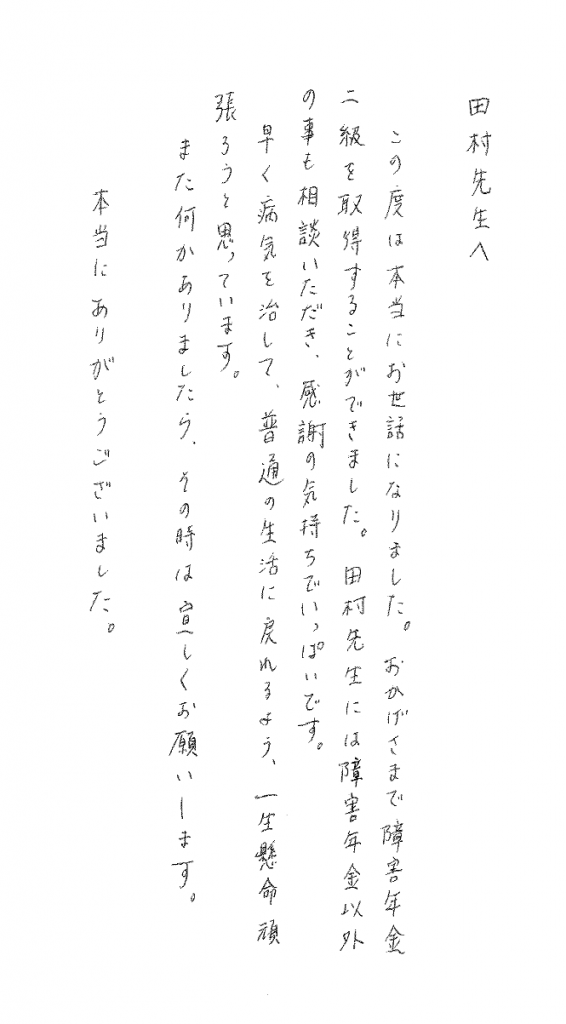 田村先生へ
この度は本当にお世話になりました。おかげさまで障害年金
二級を取得することができました。田村先生には障害年金以外
の事も相談いただき、感謝の気持ちでいっぱいです。
早く病気を治して、普通の生活に戻れるよう、一生懸命頑
張ろうと思っています。
また何かありましたら、その時は宜しくお願いします。
本当にありがとうございました。